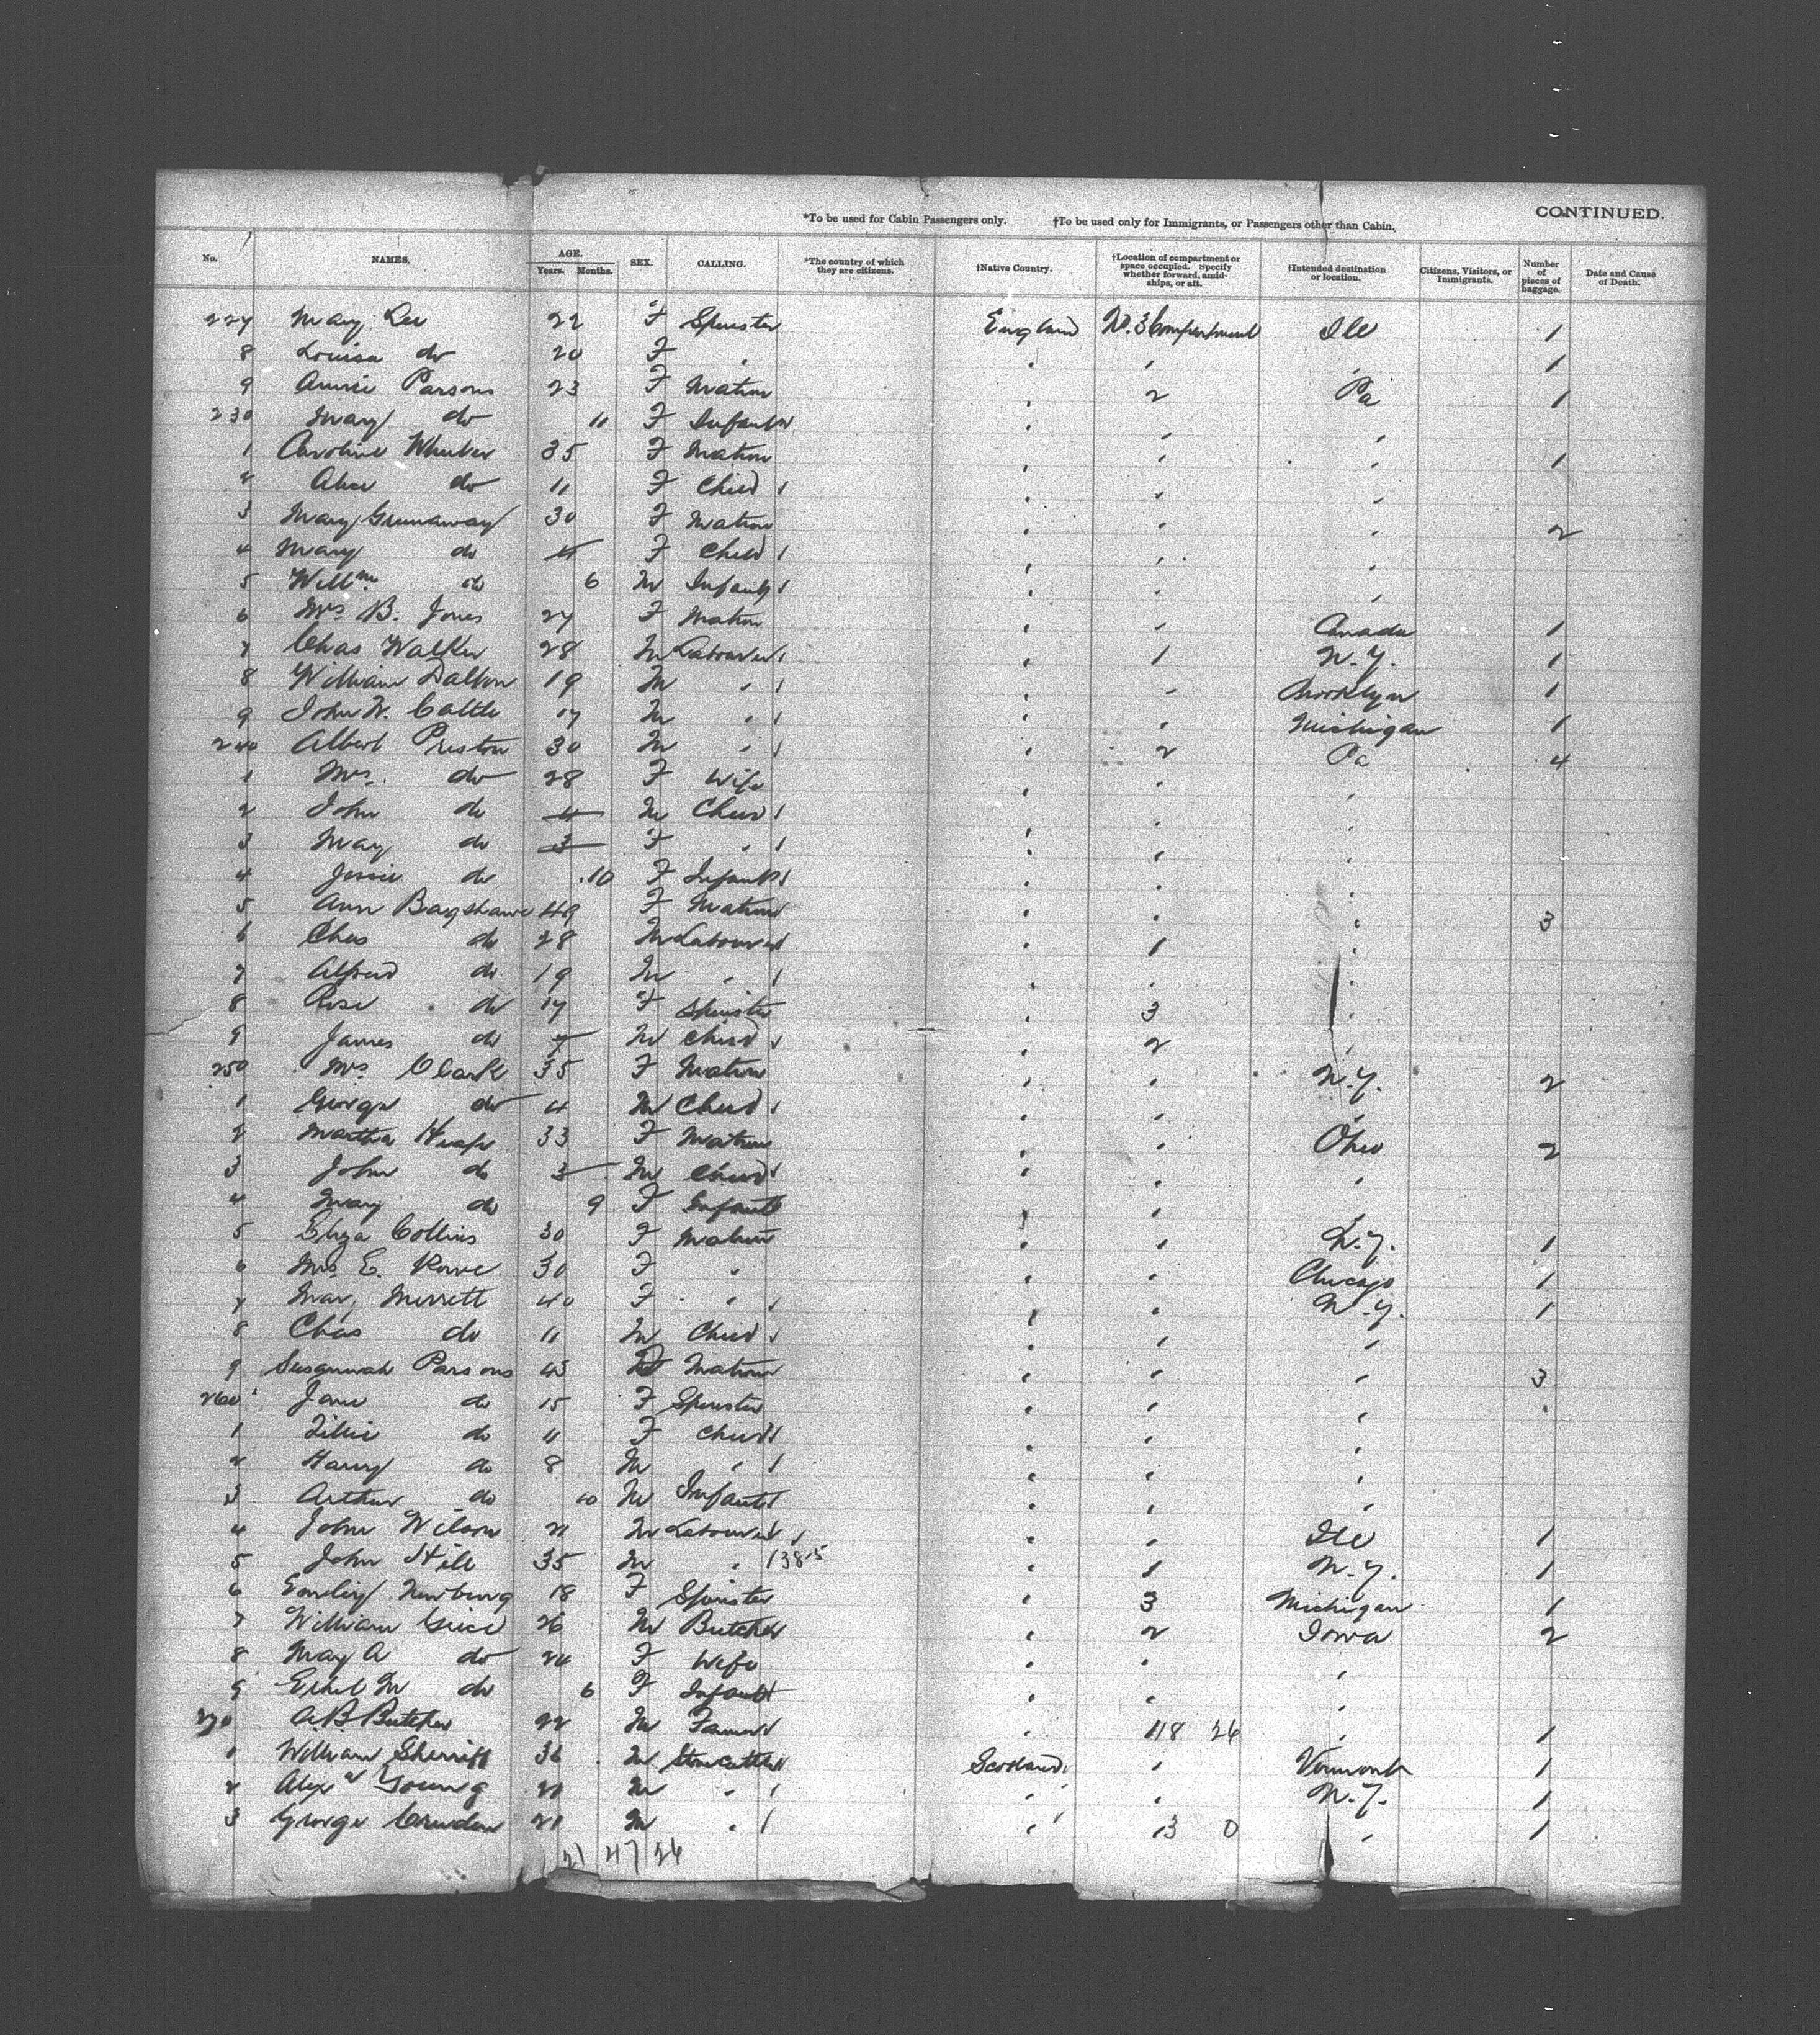 CONTINUED.
*To be used for Cabin Passengers only. †To be used only for Immigrants, or Passengers other than Cabin.
No. NAMES. AGE. Years. Months. SEX. CALLING. *The country of which they are citizens. †Native Country. †Location of compartment or space occupied. Specify whether forward, amidships, or aft. †Intended destination or location. Citizens, Visitors, or Immigrants. Number of pieces of baggage. Date and Cause of Death.
227 Mary Lee 22 F Spinster England No. 3 Compartment Ill 1
8 Louisa do 20 F " " " " 1
9 Annie Parsons 23 F Matron " 2 Pa 1
230 Mary do 11 F Infant " " "
1 Caroline 35 F Matron " " " 1
2 Alice do 11 F Child " " "
3 Mary Greenaway 30 F Matron " " " 2
4 Mary do 4 F Child " " "
5 Willm do 6 M Infant " " "
6 Mrs B. Jones 27 F Matron " " Canada 1
7 Chas Walker 28 M Labourer " 1 N.Y. 1
8 William Dalton 19 M " " " Brooklyn 1
9 John W. Cattle 17 M " " " Michigan 1
240 Albert Preston 30 M " " 2 Pa 4
1 Mrs. do 28 F Wife " " "
2 John do 4 M Child " " "
3 May do 3 F " " " "
4 Jessie do 10 F Infant " " "
5 Ann Bagshawe 49 F Matron " " " 3
6 Chas do 28 M Labourer " 1 "
7 Alfred do 19 M " " " "
8 Rose do 17 F Spinster " 3 "
9 James do 7 M Child " 2 "
250 Mrs Clark 35 F Matron " " N.Y. 2
1 George do 4 M Child " " "
2 Martha Heap 33 F Matron " " Ohio 2
3 John do 3 M Child " " "
4 Mary do 9 F Infant " " "
5 Eliza Collins 30 F Matron " " N.Y. 1
6 Mrs E. Rowe 30 F " " " Chicago 1
7 Mary Merrett 40 F " " " N.Y. 1
8 Chas do 11 M Child " " "
9 Susannah Parsons 43 F Matron " " " 3
260 Jane do 15 F Spinster " " "
1 Lillie do 11 F Child " " "
2 Harry do 8 M " " " "
3 Arthur do 10 M Infant " " "
4 John Wilson 21 M Labourer " " Ill 1
5 John Hill 35 M " 1385 " 1 N.Y. 1
6 Emily Newburg 18 F Spinster " 3 Michigan 1
7 William Grice 26 M Butcher " 2 Iowa 2
8 Mary A do 24 F Wife " " "
9 Ethel M do 6 F Infant " " "
270 A B Butcher 22 M Farmer " 118 26 " 1
1 William Sherriff 36 M Stonecutter Scotland " Vermont 1
2 Alexr Young 21 M " " " N.Y. 1
3 George Cruden 21 M " " 13 0 " 1
21 47 26